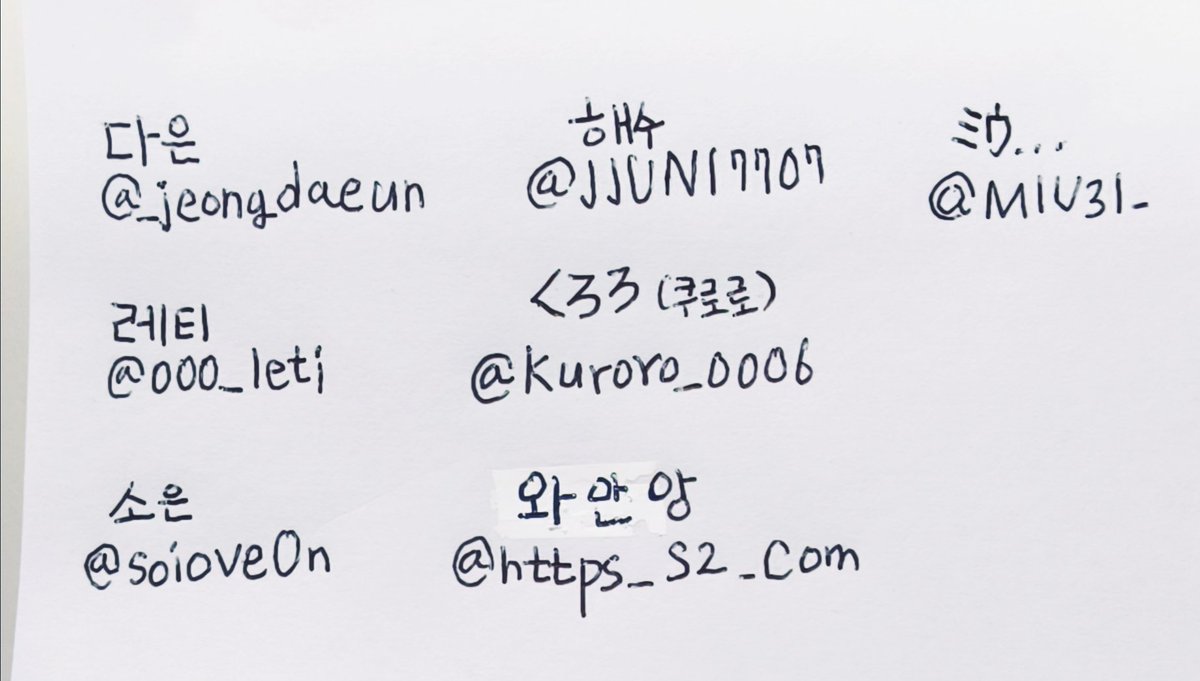 다은
@_jeong_daeun
해수
@JJUN17707
ミウ...
@MIU31_
레티
@000_leti
くろろ (쿠로로)
@Kuroro_0006
소은
@soiove0n
와안앙
@https_S2_Com